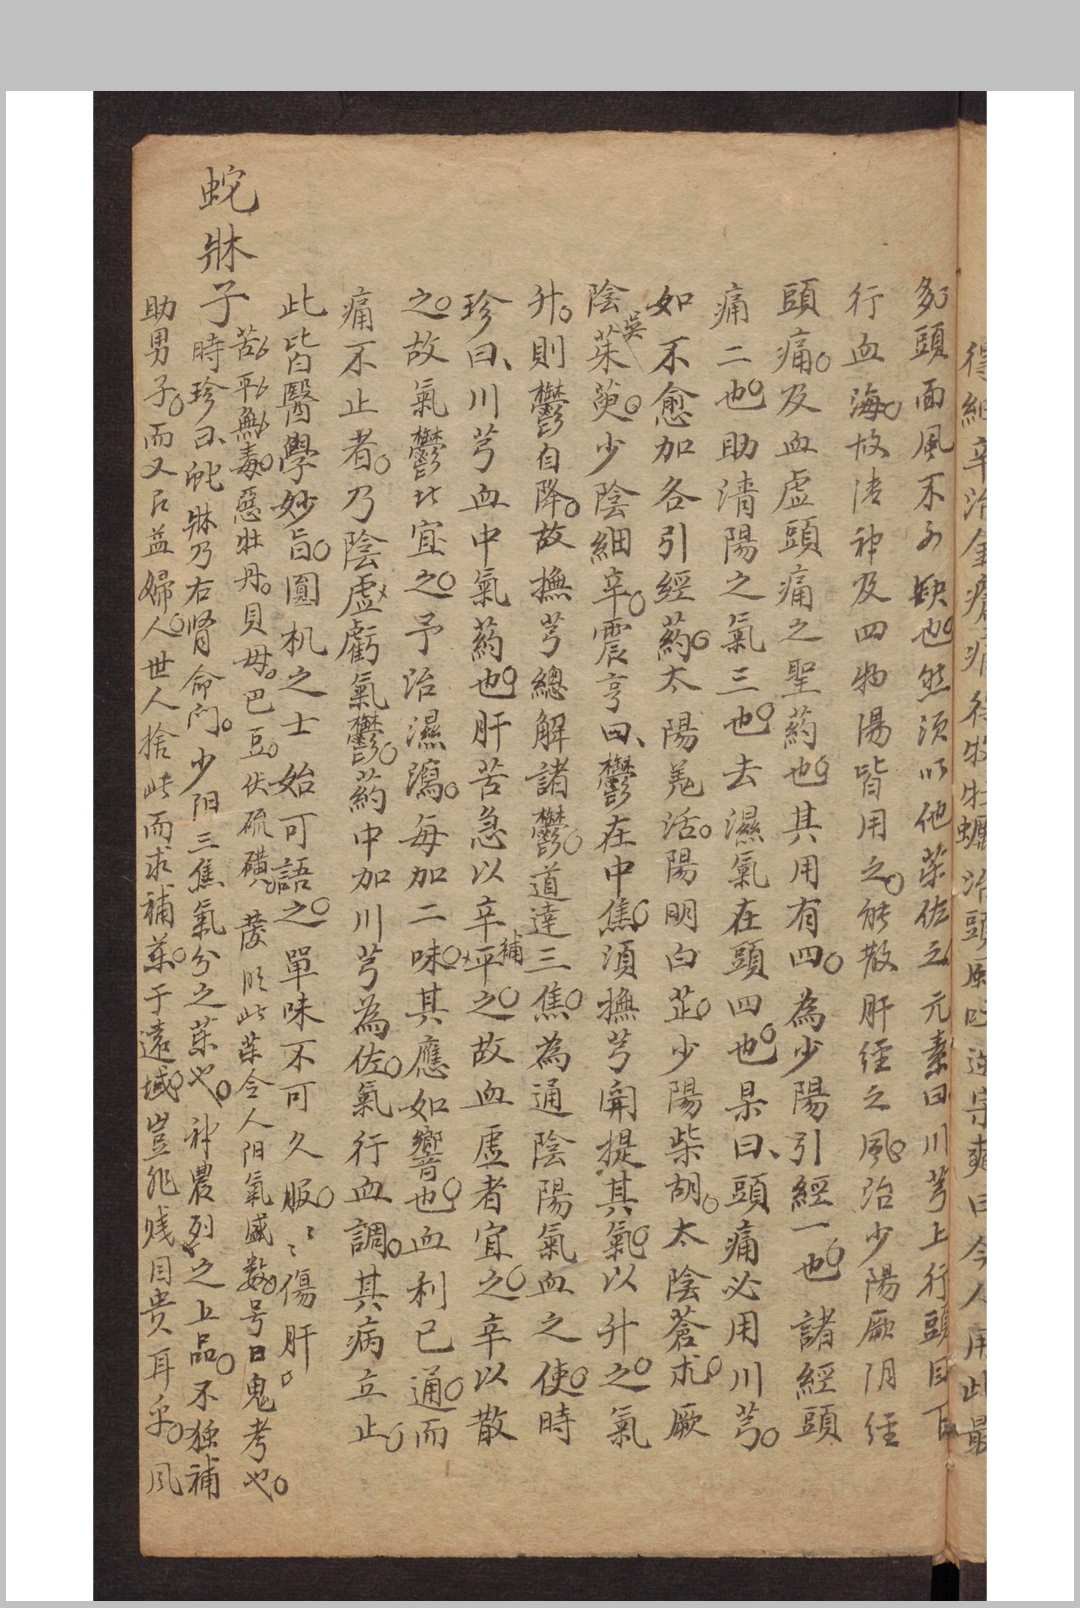 得細辛治金瘡痛得牡蠣治頭風吐逆宗奭曰今人用此最
多頭面風不可缺也然須以他藥佐之 元素曰川芎上行頭目下
行血海故清神及四物湯皆用之能散肝經之風治少陽厥阴经
頭痛及血虛頭痛之聖葯也其用有四為少陽引經一也 諸經頭
痛二也助清陽之氣三也去濕氣在頭四也杲曰頭痛必用川芎
如不愈加各引經葯太陽羗活陽明白芷少陽柴胡太陰蒼朮厥
陰吳茱萸少陰細辛震亨曰鬱在中焦須撫芎開提其氣以升之氣
升則鬱自降故撫芎總解諸鬱道達三焦為通陰陽氣血之使時
珍曰川芎血中氣葯也肝苦急以辛補之故血虛者宜之辛以散
之故氣鬱比宜之予治濕瀉每加二味其應如響也血利已通而
痛不止者乃陰虧氣鬱葯中加川芎為佐氣行血調其病立止
此皆醫學妙旨圓机之士始可語之單味不可久服〻〻傷肝
蛇牀子
苦平無毒惡牡丹貝母巴豆伏硫磺 此藥令人阳氣盛数号曰鬼考也
時珍曰蛇牀乃右腎命门少阳三焦氣分之藥也神農列之上品不獨補
助男子而又召益婦人世人捨此而求補藥于遠域豈非賎目贵耳乎風